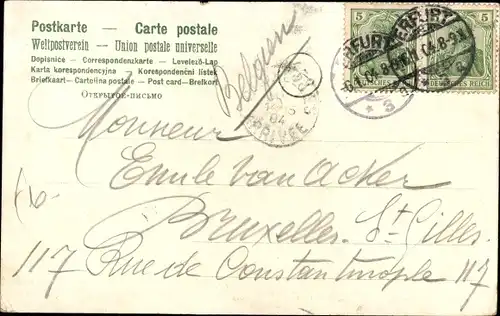 Postkarte — Carte postale
Weltpostverein - Union postale universelle
Dopisnice - Correspondenzkarte - Levelező-Lap
Karta korespondencyjna - Korespondenční lístek
Briefkaart - Cartolina postale - Post card - Brefkort
Открытое-письмо
Belgien
5 5
DEUTSCHES REICH
ERFURT
ERFURT
04
ARRIVÉE
Monsieur
Emile Van Acker
Bruxelles. St Gilles.
117 Rue de Constantinople 117